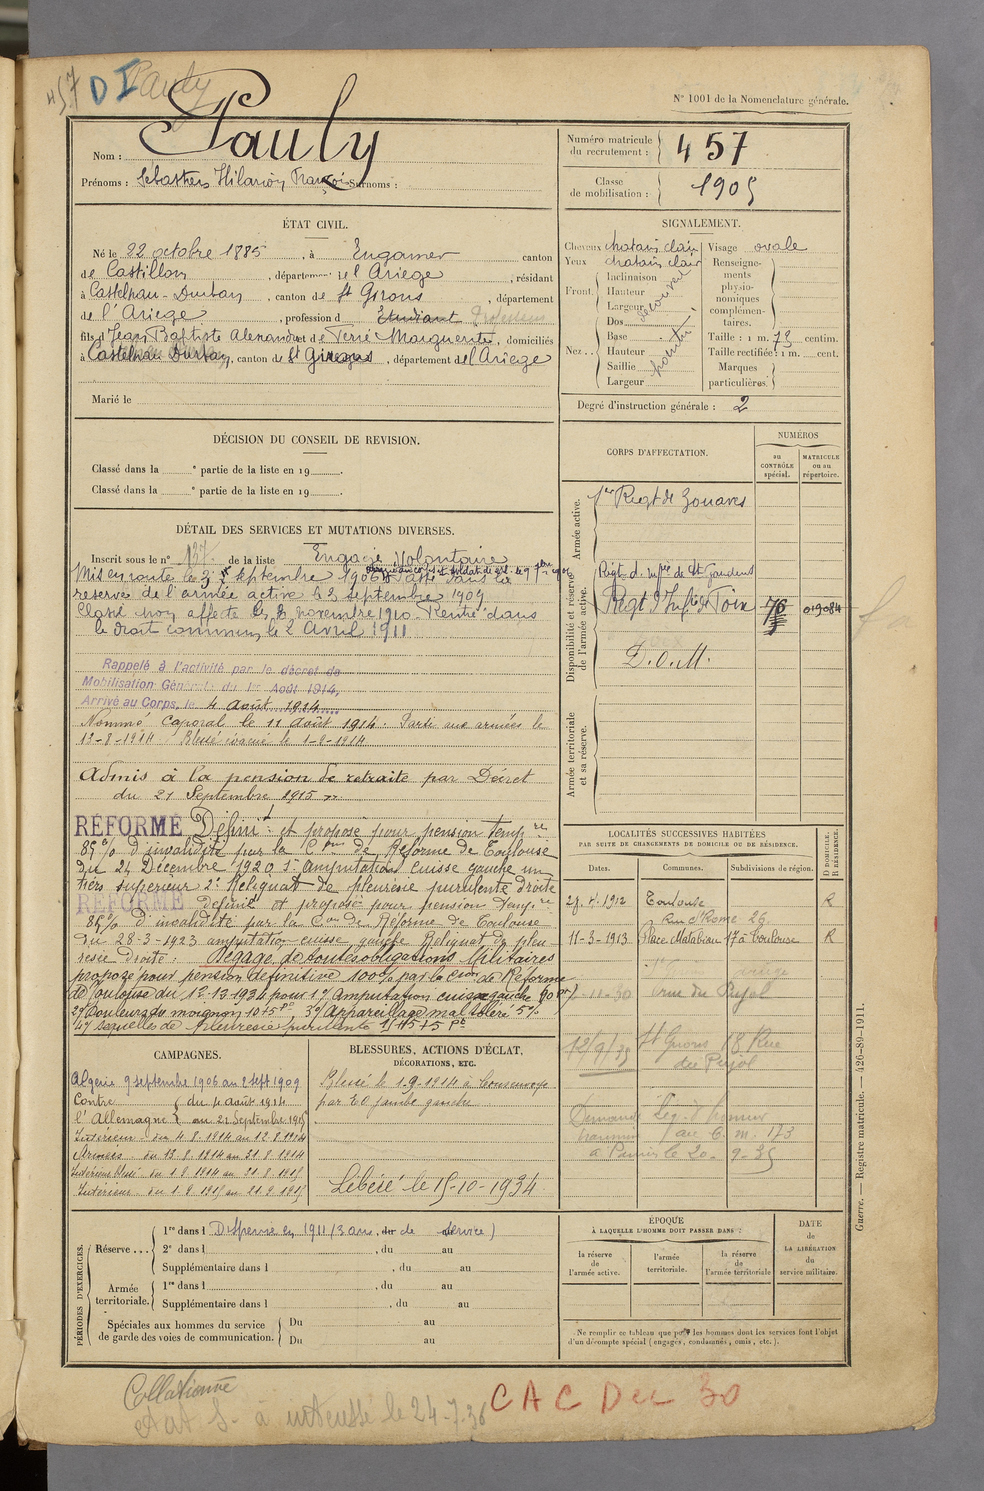 457 D I Pauly
N° 1001 de la Nomenclature générale.
Nom : Pauly
Prénoms : Sébastien Hilarion François Surnoms :
Numéro matricule du recrutement : 457
Classe de mobilisation : 1905
ÉTAT CIVIL.
Né le 22 octobre 1885, à Engomer canton
de Castillon, département de l'Ariège, résidant
à Castelnau-Durban, canton de St Girons, département
de l'Ariège, profession d Etudiant Professeur
fils d Jean Baptiste Alexandre et de Terré Marguerite, domiciliés
à Castelnau Durban, canton de St Girons, département de l'Ariège
Marié le
SIGNALEMENT.
Cheveux chatain clair Visage ovale
Yeux chatain clair Renseigne-
ments
physio-
nomiques
complémen-
taires.
Front. Inclinaison
Hauteur
Largeur
découvert
Nez... Dos
Base
Hauteur
Saillie
Largeur
Taille : 1 m. 73 centim.
Taille rectifiée : 1 m. cent.
Marques
particulières.
Degré d'instruction générale : 2
DÉCISION DU CONSEIL DE REVISION.
Classé dans la e partie de la liste en 19 .
Classé dans la e partie de la liste en 19 .
CORPS D'AFFECTATION.
NUMÉROS
au CONTRÔLE spécial.
MATRICULE ou au répertoire.
Armée active.
1er Regt de Zouaves
Disponibilité et réserve de l'armée active.
Regt d. Infie de St Gaudens
Regt d'Infie de Foix 019084
D.O.M.
Armée territoriale et sa réserve.
DÉTAIL DES SERVICES ET MUTATIONS DIVERSES.
Inscrit sous le n° 137 de la liste Engagé Volontaire
Mis en route le 3 septembre 1906 Passé dans la
réserve de l'armée active le 3 septembre 1909
Classé non affecté le 3 novembre 1910. Rentré dans
le droit commun le 2 Avril 1911
Rappelé à l'activité par le décret de
Mobilisation Générale du 1er Août 1914,
Arrivé au Corps, le 4 août 1914
Nommé Caporal le 11 août 1914. Parti aux armées le
12-8-1914 Blessé évacué le 1-9-1914
Admis à la pension de retraite par Décret
du 21 Septembre 1915
RÉFORMÉ Définit et proposé pour pension Tempre
85% d'invalidité par la Con de Réforme de Toulouse
du 24 Décembre 1920 1° amputation cuisse gauche un
tiers supérieur 2° Reliquat de pleurésie purulente droite
RÉFORMÉ Définit et proposé pour pension Tempre
85% d'invalidité par la Con de Réforme de Toulouse
du 28-3-1923 amputation cuisse gauche Reliquat de pleu
résie droite. Dégagé de toutes obligations Militaires
proposé pour pension définitive 100% par la Con de Réforme
de Toulouse du 12.13.1934 pour 1°/ Amputation cuisse gauche 90 %
2°/ Douleurs du moignon 10+5 3°/ Appareillage mal toléré 5%
4°/ séquelles de pleurésie purulente
LOCALITÉS SUCCESSIVES HABITÉES
PAR SUITE DE CHANGEMENTS DE DOMICILE OU DE RÉSIDENCE.
Dates. Communes. Subdivisions de région. D DOMICILE. R RÉSIDENCE.
Toulouse R
Rue d'Rome 26
11-3-1913 Place Matabiau 17 à Toulouse R
11-30 rue du Pujol
12/9/35 St Girons 18 Rue
du Pujol
Demande Lég. d'honneur
à Pamiers le 20-9-35
CAMPAGNES.
Algérie 9 septembre 1906 au 2 sept 1909
Contre du 4 août 1914
l'Allemagne au 21 Septembre 1915
Intérieur du 4.8.1914 au 12.8.1914
Armées du 13.8.1914 au 31.8.1914
Intérieur Blessé du 1.9.1914 au 31.8.1915
Intérieur du 1.9.1915 au 21.9.1915
BLESSURES, ACTIONS D'ÉCLAT,
DÉCORATIONS, ETC.
Blessé le 1.9.1914 à Consenvoye
par EO jambe gauche
Libéré le 15-10-1934
PÉRIODES D'EXERCICES.
Réserve... 1re dans l Dispensé en 1911 (3 ans de service)
2e dans l , du au
Supplémentaire dans l , du au
Armée territoriale. 1re dans l , du au
Supplémentaire dans l , du au
Spéciales aux hommes du service de garde des voies de communication. Du au
Du au
ÉPOQUE
À LAQUELLE L'HOMME DOIT PASSER DANS :
la réserve de l'armée active.
l'armée territoriale.
la réserve de l'armée territoriale
DATE de LA LIBÉRATION du service militaire.
Ne remplir ce tableau que pour les hommes dont les services font l'objet
d'un décompte spécial (engagés, condamnés, omis, etc.).
Guerre. — Registre matricule. — 426-89-1911.
Collationné
CAC Dec 30
le 24-7-36